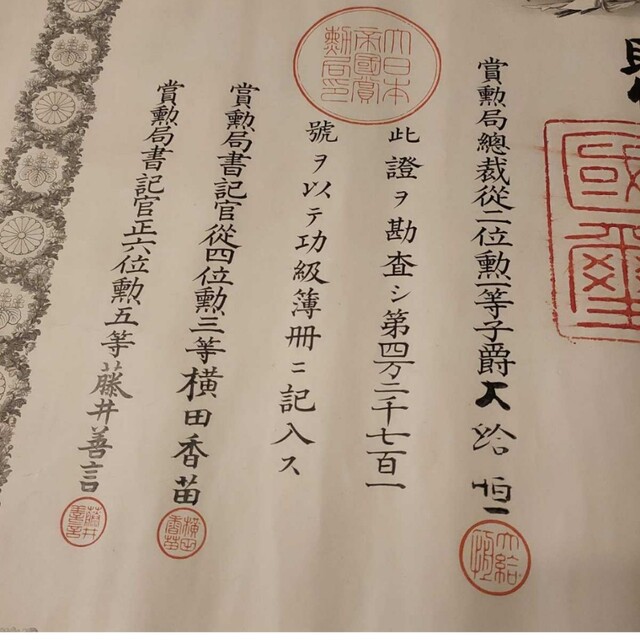 國璽
賞勲局總裁從二位勲一等子爵大給恒
大給恒
大日本
帝國賞
勲局印
此證ヲ勘査シ第四万二千七百一
號ヲ以テ功級簿册ニ記入ス
賞勲局書記官從四位勲三等横田香苗
横田
香苗
賞勲局書記官正六位勲五等藤井善言
藤井
善言